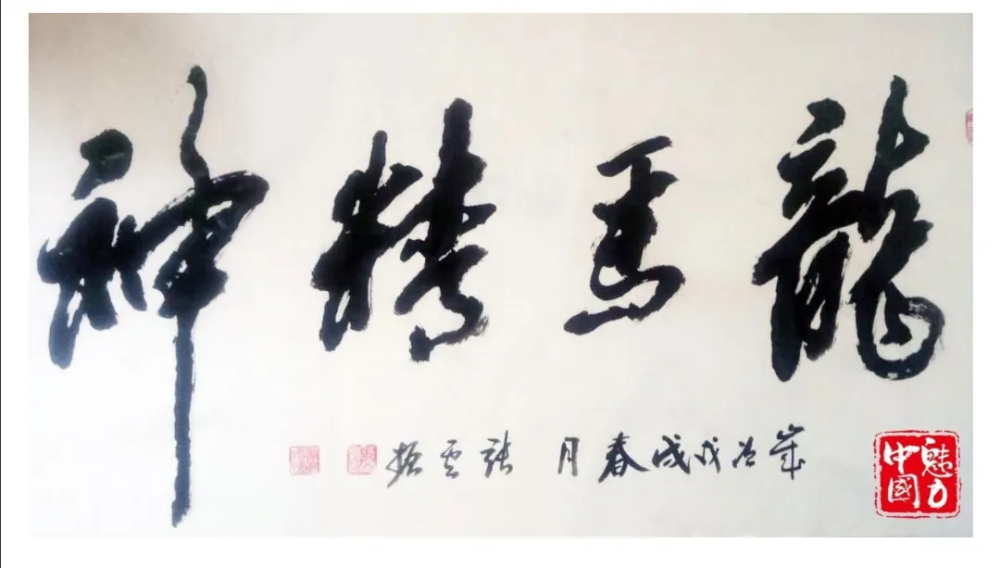 龍馬精神
歲次戊戌春月 張雲振
魅力
中國